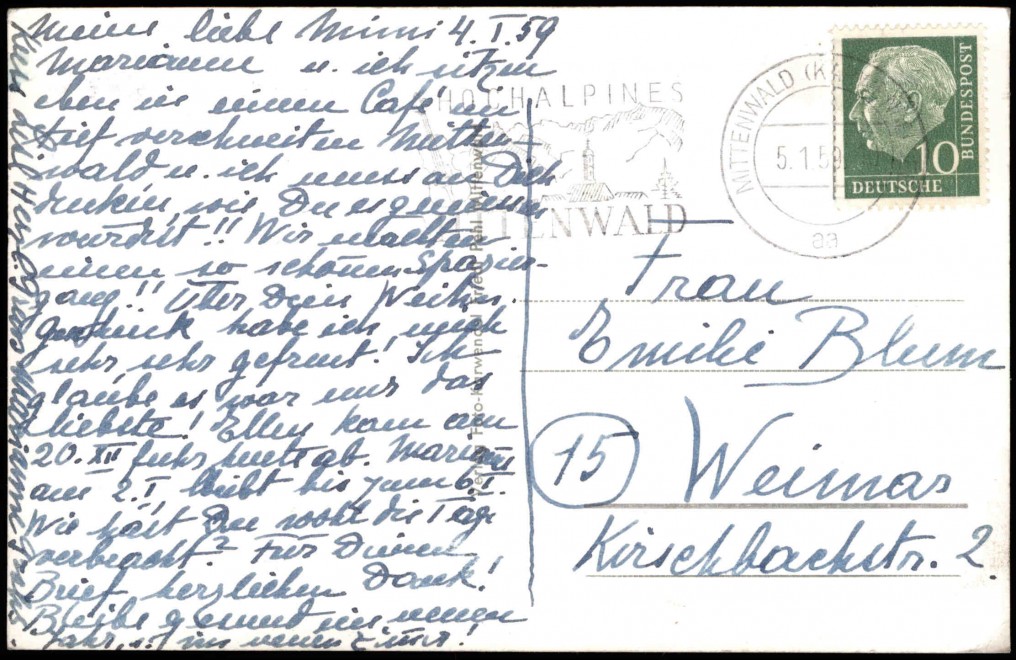 Meine liebe Mimi 4. I. 59
Marianne u. ich sitzen
eben in einem Café im
tief verschneiten Mitten-
wald u. ich muss an Dich
denken, wie Du es geniessen
würdest!! Wir machten
einen so schönen Spazier-
gang!! Über Dein Weihn.
habe ich mich
sehr sehr gefreut! Ich
glaube es war mir das
liebste! Ellen kam am
20. XII fuhr heute ab. Mariann
am 2. I, bleibt bis zum 6. I.
Wie hast Du wohl die Tage
verbracht? Für Deinen
Brief herzlichen Dank!
Bleibe gesund im neuen
Jahr, u. im neuen Zimmer!
HOCHALPINES
MITTENWALD
MITTENWALD (K
5.1.59
aa
10
DEUTSCHE
BUNDESPOST
Frau
Emilie Blum
15
Weimar
Kirschbachstr. 2